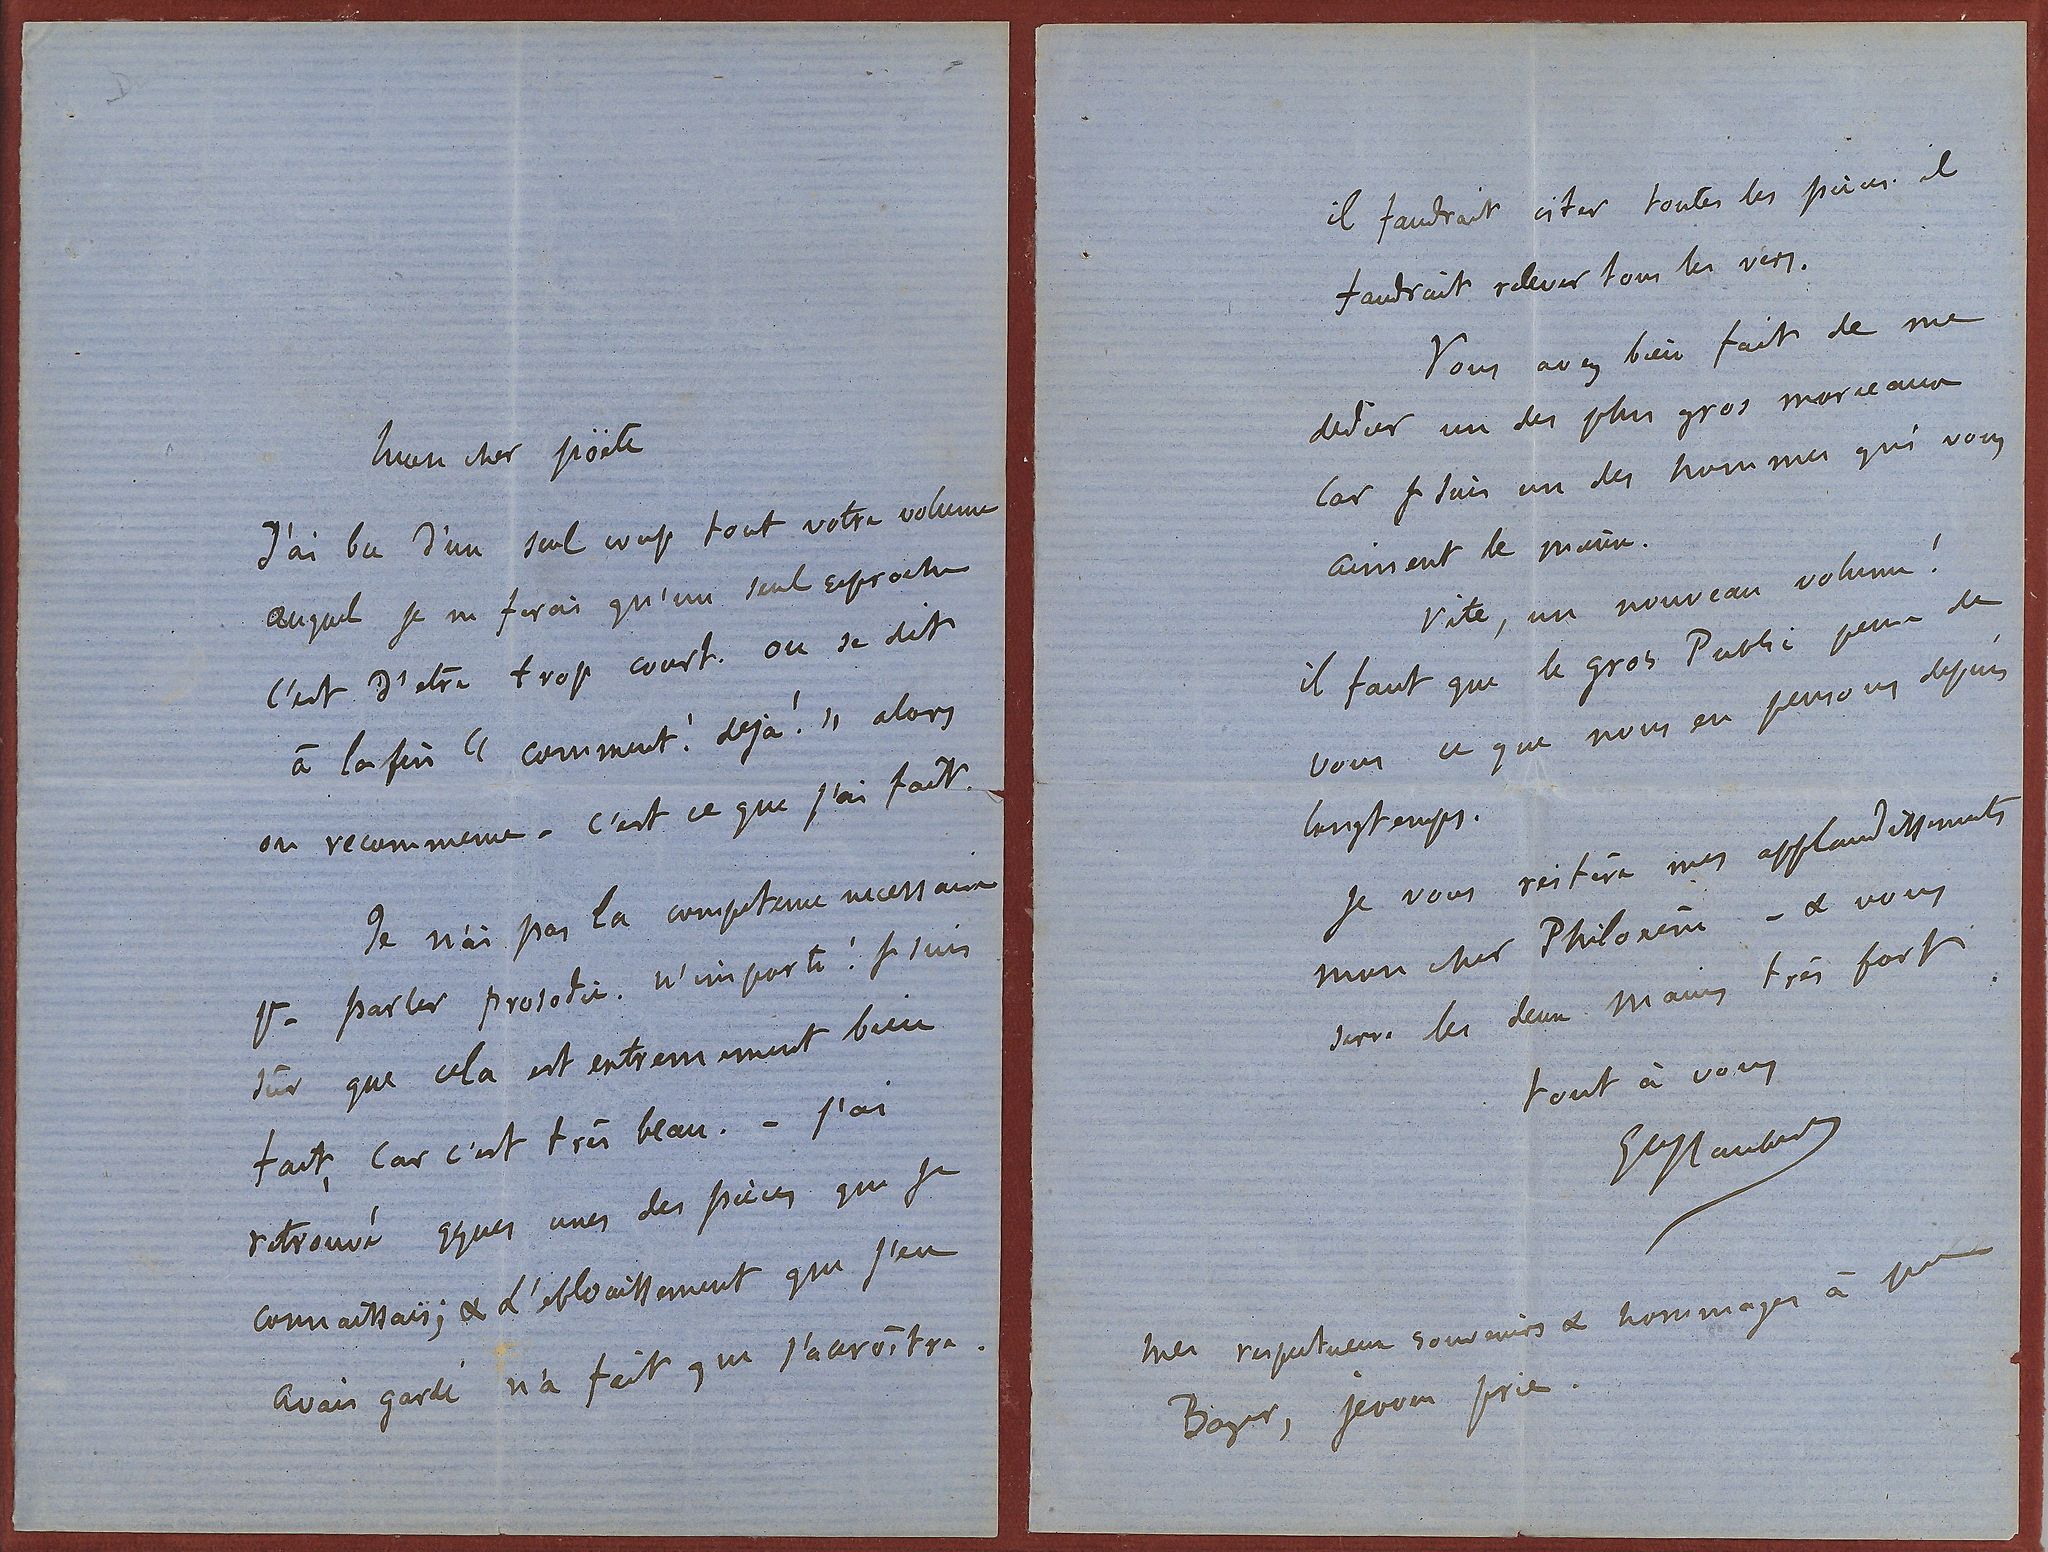 Mon cher pöete
J'ai bu d'un seul coup tout votre volume
auquel je ne ferai qu'un seul reproche
c'est d'etre trop court. on se dit
à la fin « comment! dejà! » alors
on recommence - c'est ce que j'ai fait.
Je n'ai pas la competence necessaire
pr parler prosodie. n'importe! je suis
sûr que cela est extremement bien
fait, car c'est très beau. - j'ai
retrouvé qques unes des pièces que je
connaissais; & l'eblouissement que j'en
avais gardé n'a fait que s'accroître.
il faudrait citer toutes les pièces. il
faudrait relever tous les vers.
Vous avez bien fait de me
dedier un des plus gros morceaux
car je suis un des hommes qui vous
aiment le mieux.
Vite, un nouveau volume!
il faut que le gros Public pense de
vous ce que nous en pensons depuis
longtemps.
Je vous reitère mes applaudissements
mon cher Philoxène - & vous
serre les deux mains très fort
tout à vous
Gve Flaubert
mes respectueux souvenirs & hommages à
Boyer, je vous prie.